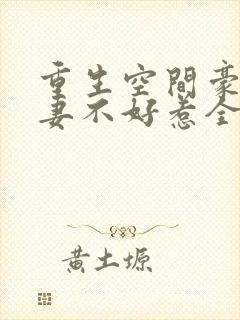 重生空間豪
妻不好惹全
黃土塬